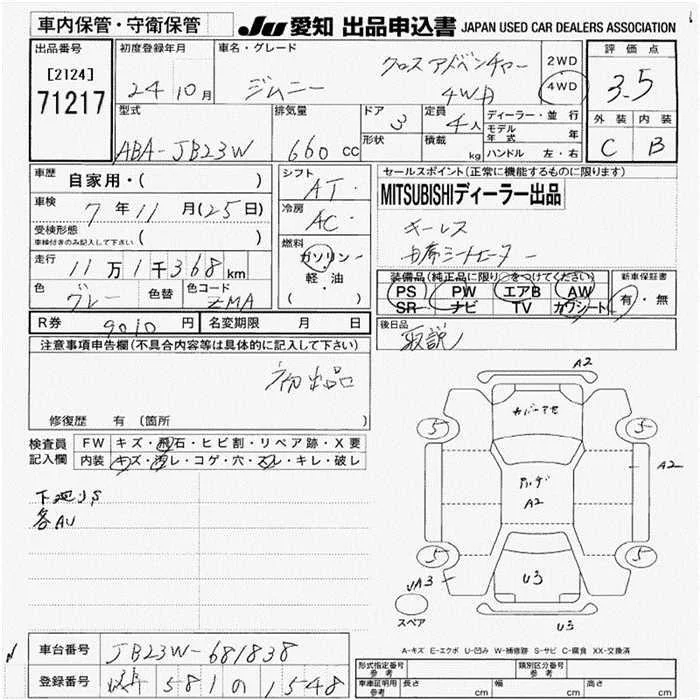 車内保管・守衛保管
JU 愛知 出品申込書 JAPAN USED CAR DEALERS ASSOCIATION
出品番号
[2124]
71217
初度登録年月
24年10月
車名・グレード
ジムニー
クロスアドベンチャー
4WD
2WD
4WD
評価点
3.5
外装 内装
C B
型式
ABA-JB23W
排気量
660cc
ドア
3
形状
定員
4人
積載
kg
ディーラー・並行
モデル年式 年
ハンドル 左・右
車歴 自家用・( )
車検 7年11月(25日)
受検形態
車検付きのみ記入して下さい ( )
走行 11万1千368km
色 グレー 色替 色コード ZMA
シフト
AT・
冷房
AC・
燃料
ガソリン・
軽・油
( ・ )
セールスポイント(正常に機能するものに限ります)
MITSUBISHIディーラー出品
キーレス
シートヒーター
装備品(純正品に限り○をつけてください)
PS PW エアB AW
SR ナビ TV カワシート
新車保証書
有・無
後日品
取説
R券 9010円 名変期限 月 日
注意事項申告欄(不具合内容等は具体的に記入して下さい)
初出品
修復歴 有 (箇所
検査員記入欄
FW キズ・飛石・ヒビ割・リペア跡・X要
内装 キズ・汚レ・コゲ・穴・スレ・キレ・破レ
下廻りS
各AU
A2
5
5
A2
A2
5
5
UA3
U3
スペア
U3
A-キズ E-エクボ U-凹み W-補修跡 S-サビ C-腐食 XX-交換済
車台番号 JB23W-681838
登録番号 岐阜 581 の 1548
形式指定番号
参考
類別区分番号
参考
自動車証明用
参考
長さ cm 幅 cm 高さ cm